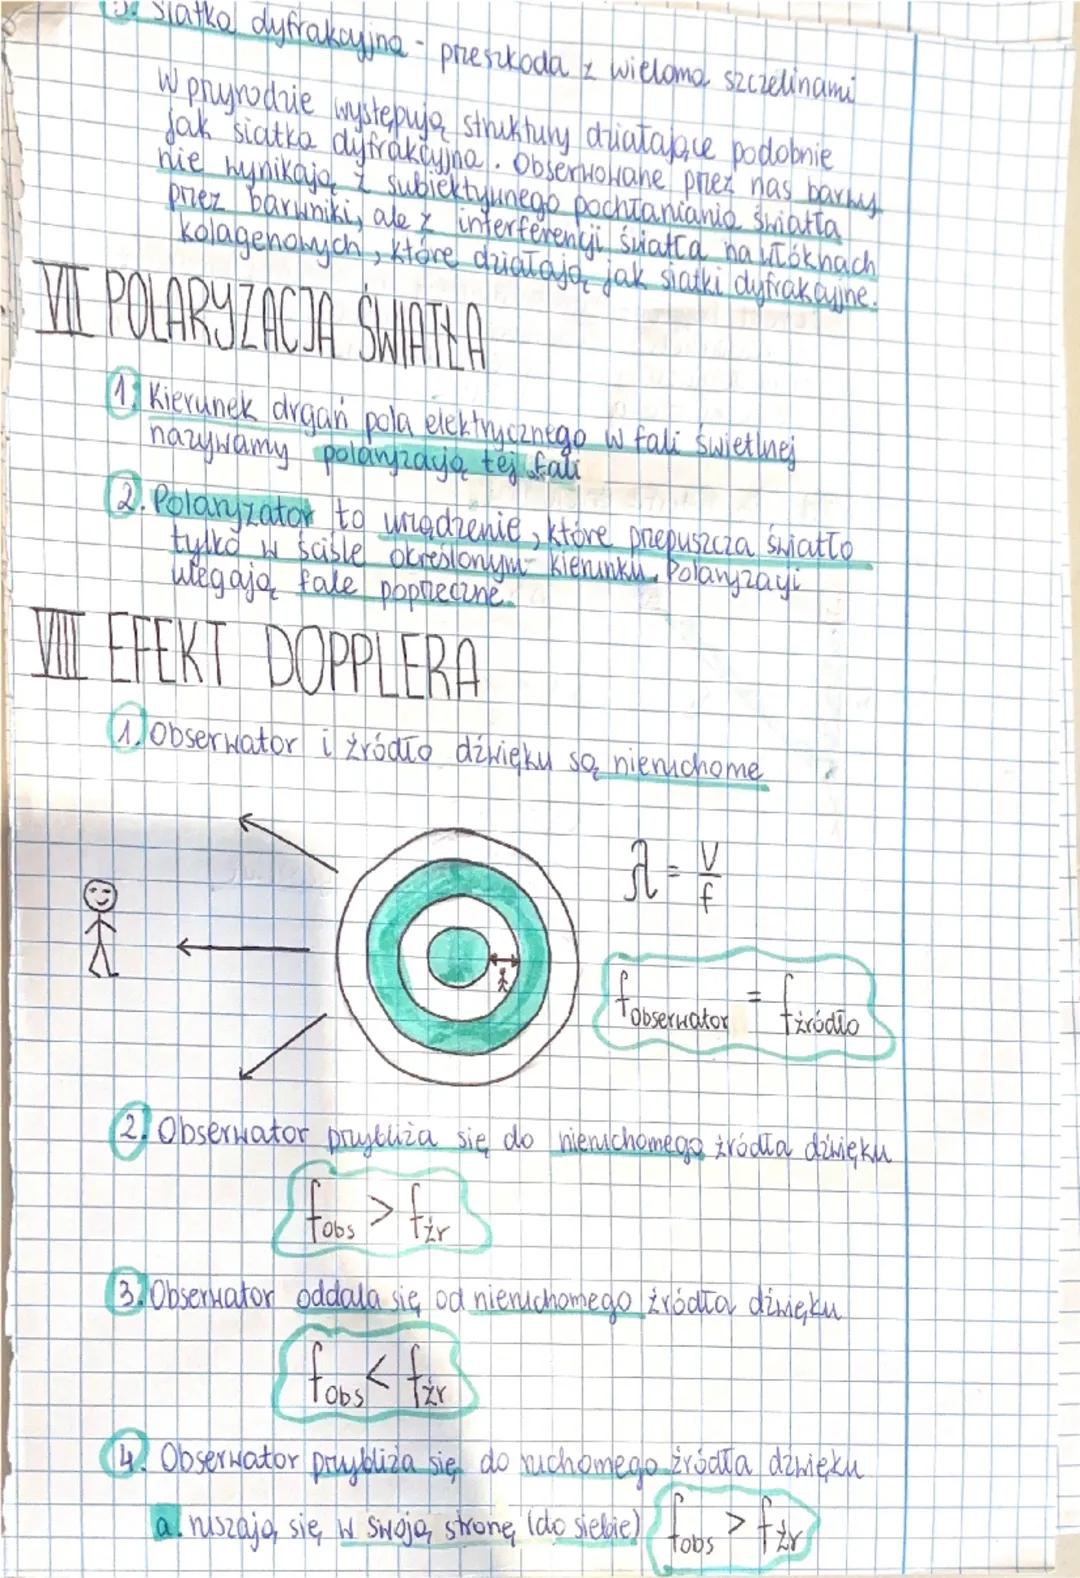 3. Siatka dyfrakcyjna - przeszkoda z wieloma szczelinami
W przyrodzie występują struktury działające podobnie
jak siatka dyfrakcyjna. Obserwowane przez nas barwy
nie wynikają z subiektywnego pochłaniania światła
przez barwniki, ale z interferencji światła na włóknach
kolagenowych, które działają jak siatki dyfrakcyjne.
VII POLARYZACJA ŚWIATŁA
1. Kierunek drgań pola elektrycznego w fali świetlnej
nazywamy polaryzacją tej fali
2. Polaryzator to urządzenie, które przepuszcza światło
tylko w ściśle określonym kierunku. Polaryzacji
ulegają fale poprzeczne.
VIII EFEKT DOPPLERA
1. Obserwator i źródło dźwięku są nieruchome
λ = V/f
f obserwator = f źródło
2. Obserwator przybliża się do nieruchomego źródła dźwięku
f obs > f źr
3. Obserwator oddala się od nieruchomego źródła dźwięku
f obs < f źr
4. Obserwator przybliża się do ruchomego źródła dźwięku
a. ruszają się w swoją stronę (do siebie) f obs > f źr